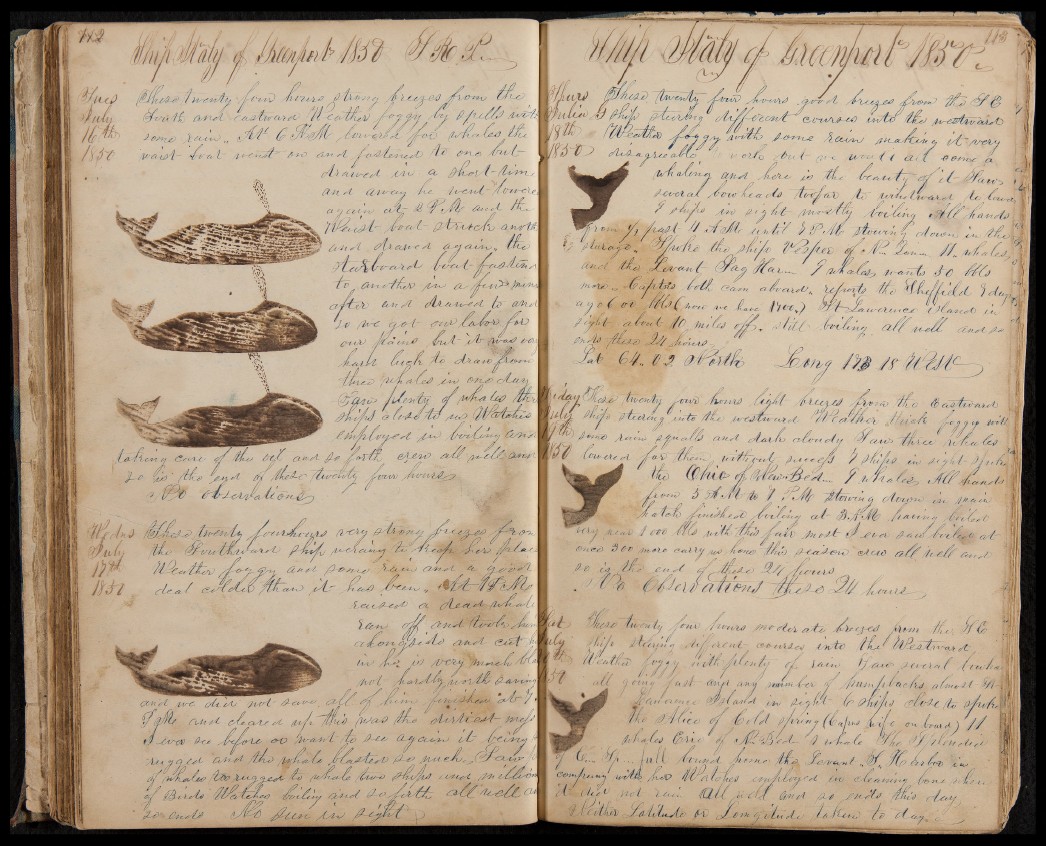 112
Ship Italy of Greenport 1850
Tues
July
16th
1850
These twenty four hours strong breezes from the
South and eastward Weather foggy by spells with
some rain. At 6 A.M lowered for whales the
waist boat went on and fastened to one but
drawed in a short time
and away he went lowered
again at 2 P.M and the
Waist boat struck another
and drawed again. the
Starboard boat fastened
to another in a few
after and drawed to and
so we got our labor for
our pains but it was
hard luck to draw from
three whales in one day
Saw plenty of whales
ships close to us Watches
employed in boiling and
taking care of the oil and so forth crew all well and
so is the end of these twenty four hours
No observations
Wedns
July
17th
1850
These twenty four hours very strong breezes from
the Southward Ship
Weather foggy and some rain and a good
deal colder than it has been. At
raised a dead whale
ran off and took him
alongside and cut
in he is very much
not hardly worth saving
and we did not save all of him finished at 7
P M and cleared up This was the dirtiest mess
I ever see before or want to see again it being
rugged and the whale blasted so much. Saw
of whales too rugged to whale two ships and million
of Birds Watches boiling and so forth all well
so ends No Sun in sight
113
Ship Italy of Greenport 1850
Thurs
18th
1850
These twenty four hours good breezes from the S E
Ship steering different courses into the westward
Weather foggy with some rain making it very
disagreeable work but
whaling and here is the beauty of it Saw
several bowheads too far to windward to lower
7 ships in sight mostly boiling All hands
from 1/2 past 4 A M until 8 P M stowing down in the
Spoke the ship Vesper of N. Lon. 11 whales
and the Levant Sag Har. 7 whales wants 30 bbls
more. Capt's both came aboard. reports the Sheffield 8 days
ago
St Lawrence Island in
sight about 40 miles off. still boiling all well and so
ends these 24 hours
Lat 64.. 02 North Long 173 18 West
Friday
July
19th
1850
These twenty four hours light breezes from the Eastward
ship steering into the westward Weather thick foggy with
some rain squalls and dark cloudy Saw three whales
lowered for them without success 7 ships in sight spoke
the Ohio of New Bed... 7 whales. All hands
from 5 A M to 7 P M stowing down in main
hatch finished boiling at 3 A M having boiled
very near 1000 bbls with this fair most I ever saw boiled at
once 300 more carry us home this season crew all well and
so is the end of these 24 hours
No Observations these 24 hours
Sat
July
These twenty four hours moderate breezes from the S E
ship steering different courses into the Westward
Weather foggy with plenty of rain Saw several bowheads
all going fast and any number of humpbacks almost St
Lawrence Island in sight 6 ships close to spoke
the Alice of Cold Spring (Capns wife on board) 11
whales Erie of N. Bed 1 whale The Splendid
of C... Sp... full bound home the Levant S. Harbor in
company with her Watches employed in cleaning bone when
it did not rain All well and so ends this day
Neither Latitude or Longitude taken to day